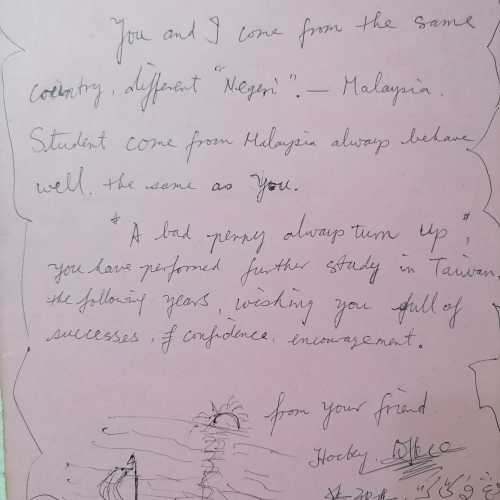 You and I come from the same
country, different "Negeri". — Malaysia.
Student come from Malaysia always behave
well, the same as You.
"A bad penny always turn up",
you have performed further study in Taiwan.
the following years, wishing you full of
successes, of confidence, encouragement.
from your friend.
Hockey.